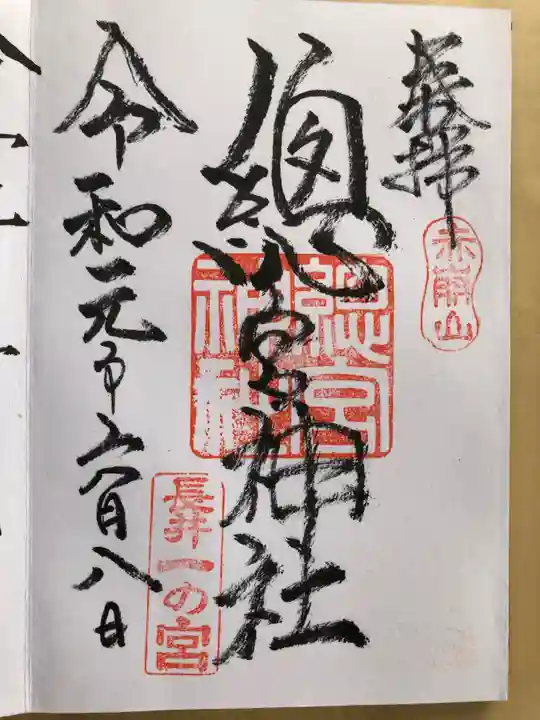 奉拝
赤崩山
總宮神社
總宮
神社
令和元年六月八日
長井一の宮